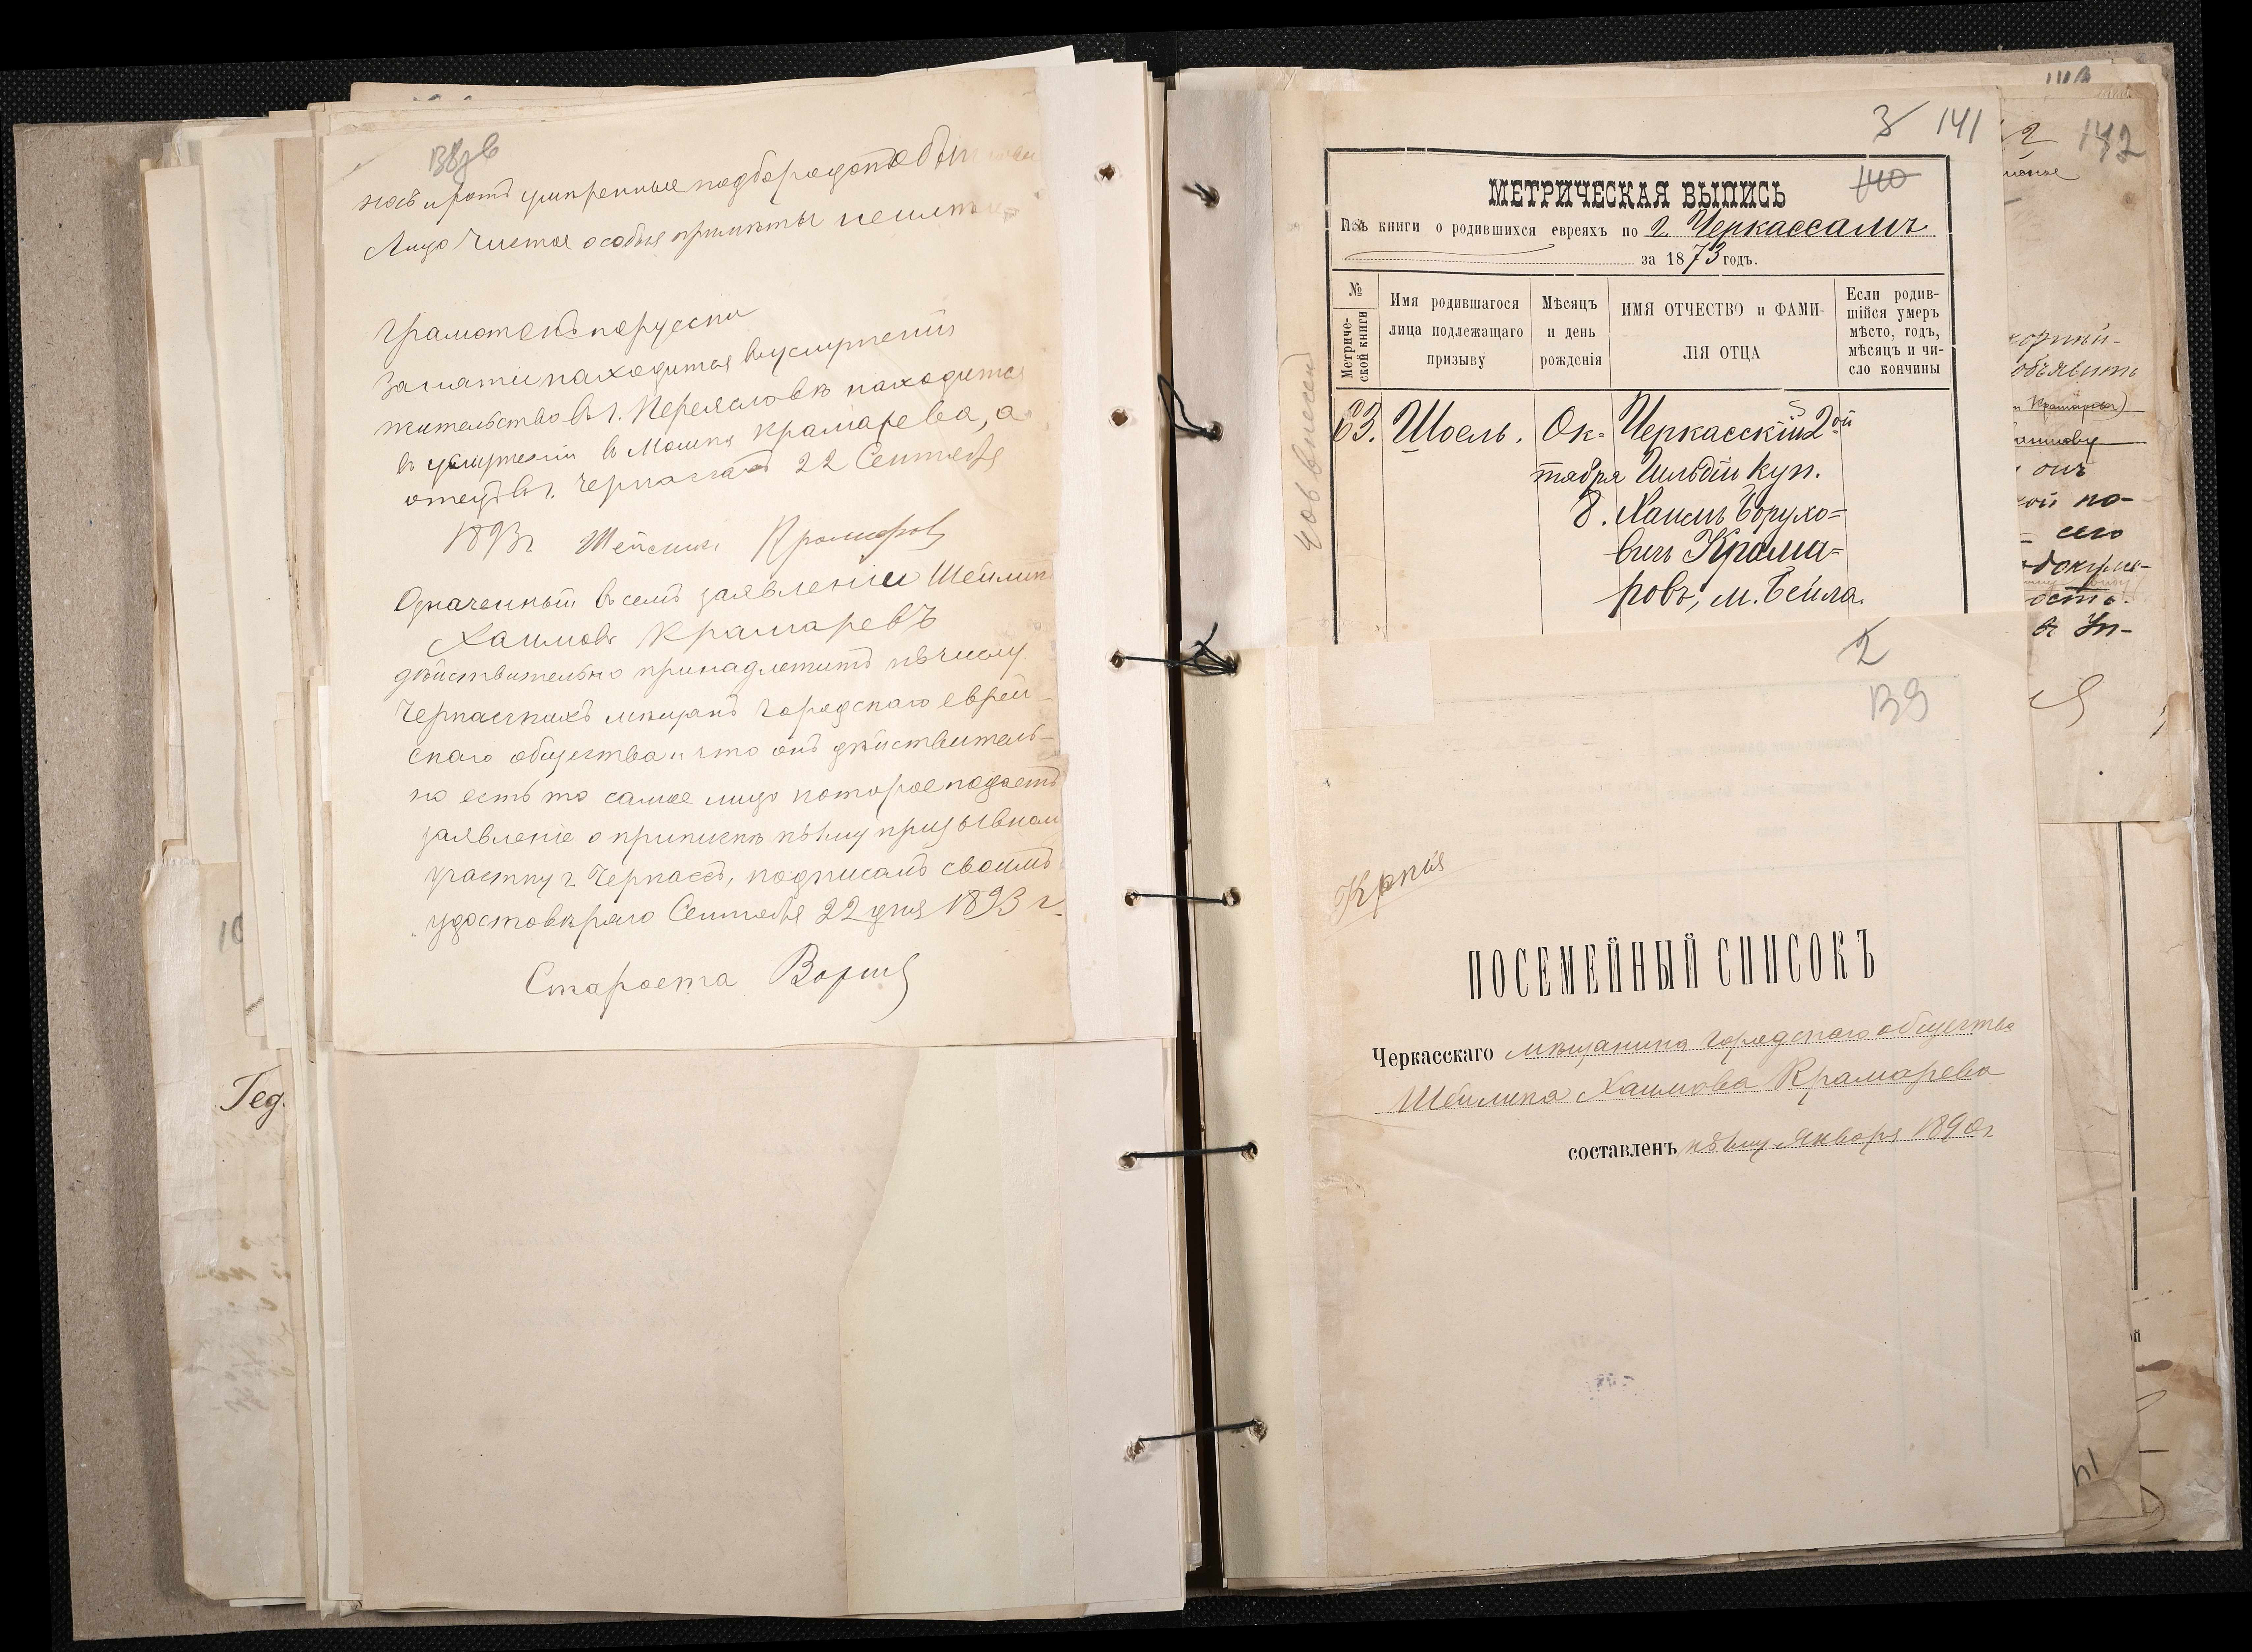 носъ и ротъ умѣренные подбородокъ
Лицо чистое особыя примѣты неимѣ
Грамотенъ порусски
Занятіи находится вуслуженіи
жительство въ г. Переясловѣ находится
въ услуженіи в Мошка Крамарева, а
отецъ въ г. Черкасахъ 22 Сентября
1893 г Шейлик Крамаровъ
Означенный въ семъ заявленіи Шейлик
Хаимовъ Крамаревъ
дѣйствительно принадлежитъ къ числу
Черкасскихъ мѣщанъ городскаго еврей-
скаго общества и что онъ дѣйствитель-
но есть то самое лицо которое подаетъ
заявленіе о припискѣ къ 1му призывном
участку г. Черкассъ, подписамъ своимъ
удостовѣряю Сентября 22 дня 1893 г.
Староста
Гед.
3 141
140
МЕТРИЧЕСКАЯ ВЫПИСЬ
Изъ книги о родившихся евреяхъ по г. Черкассамъ
за 1873 годъ.
№ Метриче-ской книги
Имя родившагося лица подлежащаго призыву
Мѣсяцъ и день рожденія
ИМЯ ОТЧЕСТВО и ФАМИ-ЛІЯ ОТЦА
Если родив-шійся умеръ мѣсто, годъ, мѣсяцъ и чи-сло кончины
63. Шоель. Ок- Черкасскій 2ой
тября Гильдіи куп.
8. Хаимъ Борухо=
вичъ Крама=
ровъ, м. Бейла.
2
139
Копія
ПОСЕМЕЙНЫЙ СПИСОКЪ
Черкасскаго мѣщанина городскаго общества
Шейлика Хаимова Крамарева
составленъ къ 1му Января 1890 г.
142
объявить
онъ
по-
сего